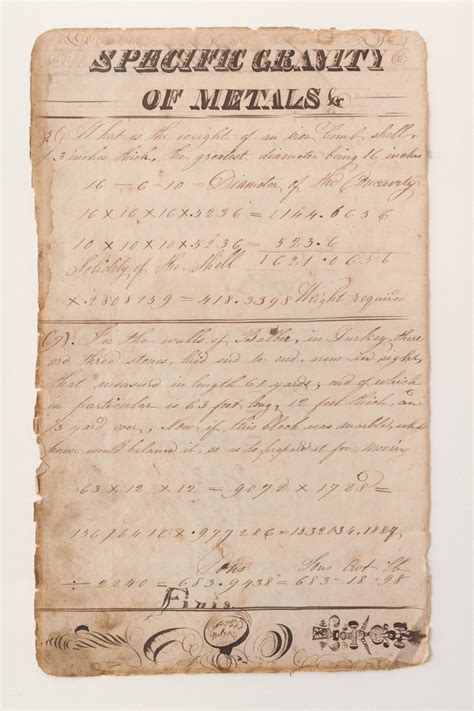 SPECIFIC GRAVITY
OF METALS &c
What is the weight of an iron bomb shell,
3 inches thick, the greatest diameter being 16 inches
16 — 6 = 10 = Diameter of the Concavity
16 X 16 X 16 X .5236 = 2144.6656
10 X 10 X 10 X .5236 = 523.6
Solidity of the Shell 1621.0656
X .2808159 = 418.3398 Weight required
(7). In the walls of Balbec, in Turkey, there
are three stones, laid end to end, now in sight,
that measured in length 61 yards; one of which
in particular is 63 feet long, 12 feet thick, and
3 yard over; Now, if this block was marble, what
power would balance it, so as to prepare it for moving
63 X 12 X 12 = 9072 X 1728 =
15676416 X .0977286 = 1532034.1887
Tons Tons Cwt lb
÷ 2240 = 683.9438 = 683.18.98
Finis